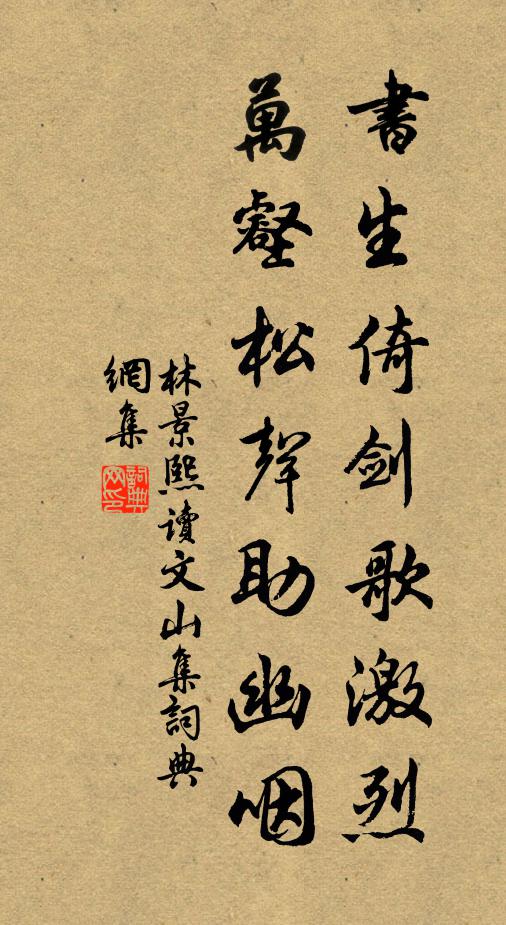 書生倚劍歌激烈
萬壑松聲助幽咽
林景熙讀文山集詞典
網集
詞典網印